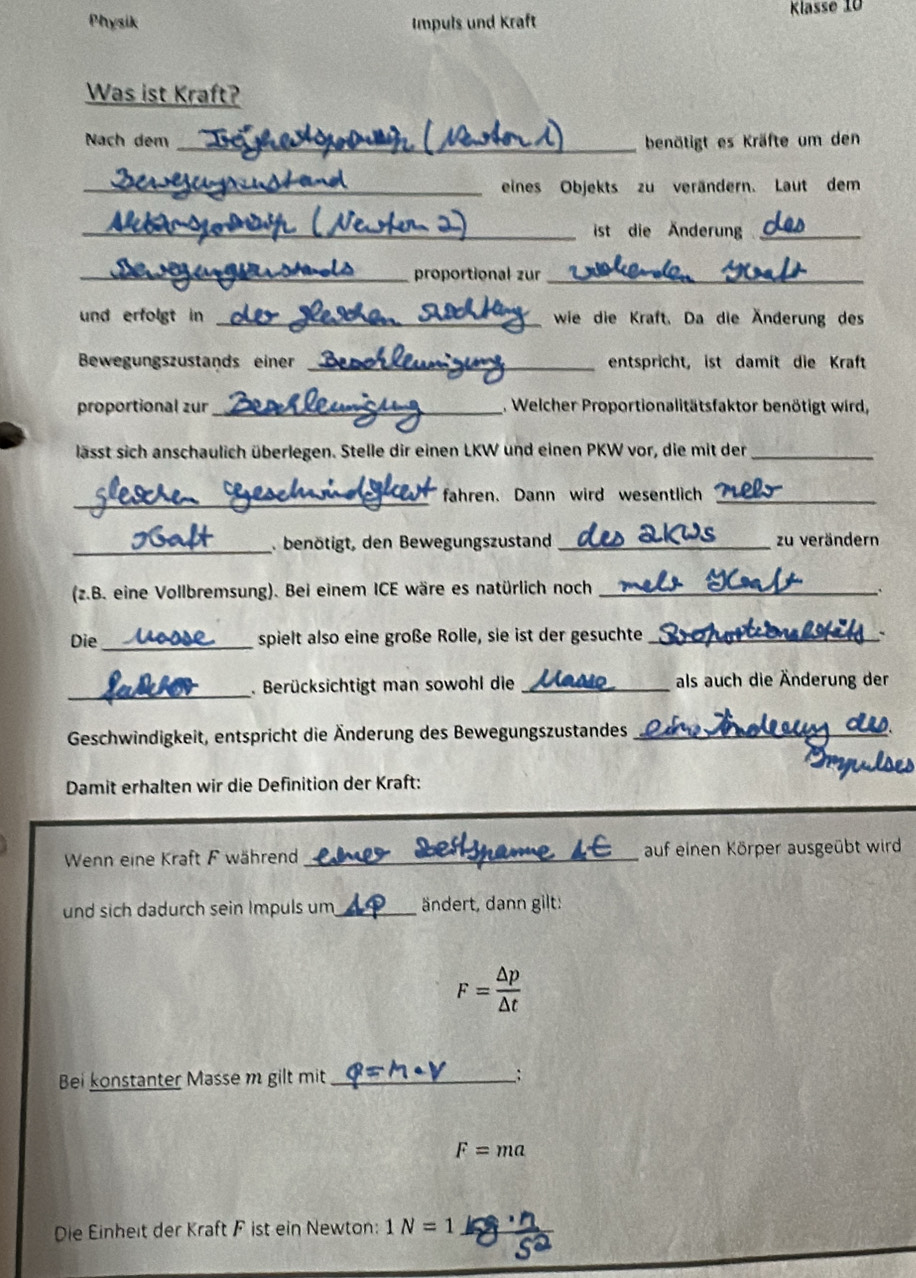 Physik Impuls und Kraft Klasse 10
Was ist Kraft?
Nach dem Trägheitsprinzip (Newton 1) benötigt es Kräfte um den
Bewegungszustand eines Objekts zu verändern. Laut dem
Aktionsprinzip (Newton 2) ist die Änderung des
Bewegungszustands proportional zur wirkenden Kraft
und erfolgt in der gleichen Richtung wie die Kraft. Da die Änderung des
Bewegungszustands einer Beschleunigung entspricht, ist damit die Kraft
proportional zur Beschleunigung. Welcher Proportionalitätsfaktor benötigt wird,
lässt sich anschaulich überlegen. Stelle dir einen LKW und einen PKW vor, die mit der
gleichen Geschwindigkeit fahren. Dann wird wesentlich mehr
Kraft, benötigt, den Bewegungszustand des LKWs zu verändern
(z.B. eine Vollbremsung). Bei einem ICE wäre es natürlich noch mehr Kraft.
Die Masse spielt also eine große Rolle, sie ist der gesuchte Proportionalitäts-
faktor. Berücksichtigt man sowohl die Masse als auch die Änderung der
Geschwindigkeit, entspricht die Änderung des Bewegungszustandes eine Änderung des.
Impulses
Damit erhalten wir die Definition der Kraft:
Wenn eine Kraft F während einer Zeitspanne Δt auf einen Körper ausgeübt wird
und sich dadurch sein Impuls um Δp ändert, dann gilt:
F = Δp/Δt
Bei konstanter Masse m gilt mit p = m • v:
F = ma
Die Einheit der Kraft F ist ein Newton: 1 N = 1 kg · m/s²